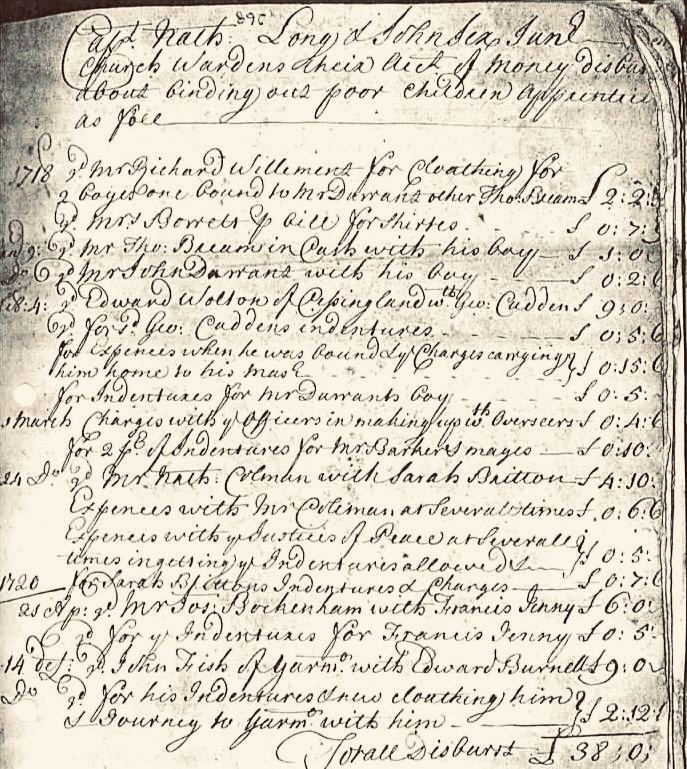 896
Capt. Nath: Long & John Jex Junr
Church Wardens their Acct of money disbur
about binding out poor Children Apprentice
as foll
1718 pd Mr Richard Willement for Cloathing for
2 boyes one bound to Mr Durrant other Tho: Bream £ 2:2:
pd Mrs Borrett p bill for Shirtes £ 0:7:
9: pd Mr Tho: Bream in Cash with his boy £ 1:0
Do 6 pd Mr John Durrant with his boy £ 0:2:6
8:4: pd Edward Wolton of Cessingland wth Geo: Cadden £ 9:0:
pd for sd Geo: Caddens indentures £ 0:5:6
for Expences when he was bound & ye Charges carrying
him home to his Mastr } £ 0:15:6
for Indentures for Mr Durrants boy £ 0:5:
March Charges with ye Officers in making up wth Overseers £ 0:4:6
for 2 ps of Indentures for Mr Barkers mayes £ 0:10:
24 Do pd Mr Nath: Colman with Sarah Britton £ 4:10:
Expences with Mr Coleman at Severall times £ 0:6:6
Expences with ye Justices of Peace at Severall
times in getting ye Indentures allowed &c } £ 0:5:
1720 for Sarah Brittons Indentures & Charges £ 0:7:6
21 Ap: pd Mr Jos: Bockenham with Francis Jenny £ 6:0:
pd for ye Indentures for Francis Jenny £ 0:5:
14 Des: pd John Fish of Yarmo with Edward Burnell £ 9:0
Do pd for his Indentures & new cloathing him
& Journey to Yarmo with him } £ 2:12:
Totall Disburst £ 38:0: